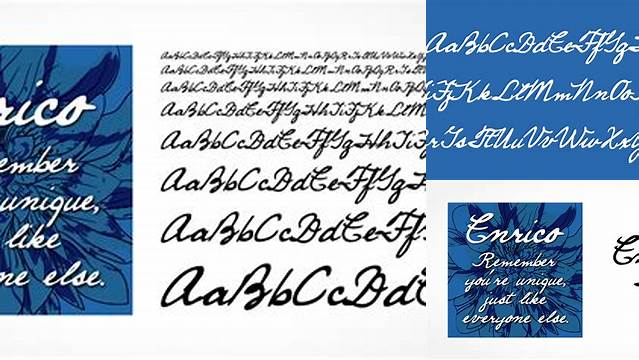 rico
ember
unique,
like
ne else.
AaBbCcDdEeFfGgHhIiJjKkLlMmNnOoPpQqRrSs
AaBbCcDdEeFfGgHhIiJjKkLlMmNnOoPpQqR
AaBbCcDdEeFfGgHhIiJjKkLlMmNnOoP
AaBbCcDdEeFfGgHhIiJjKkLlMm
AaBbCcDdEeFfGgHhIi
AaBbCcDdEeFfGg
AaBbCcDdEeFf
AaBbCcDdE
AaBbCcDdEeFfGg
iJjKkLlMmNnOo
rSsTtUuVvWwXxYy
Enrico
Remember
you're unique,
just like
everyone else.
En